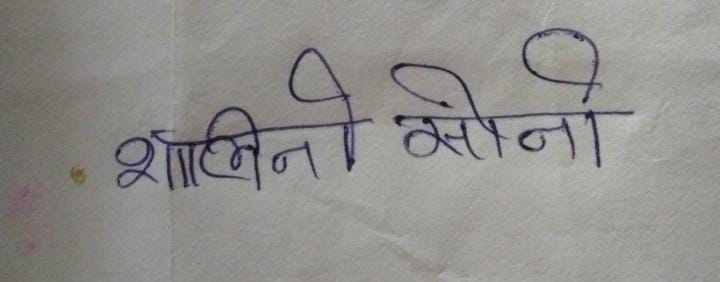 शालिनी सोनी